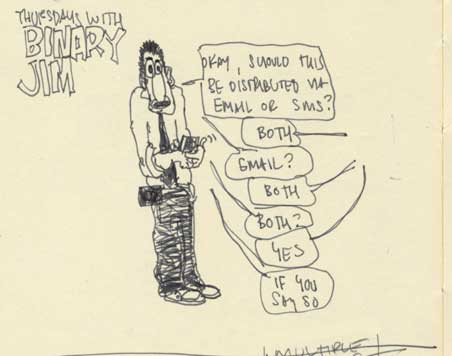 THURSDAYS WITH
BINARY
JIM
OKAY, SHOULD THIS
BE DISTRIBUTED VIA
EMAIL OR SMS?
BOTH
EMAIL?
BOTH
BOTH?
YES
IF YOU
SAY SO
MULTIPLE